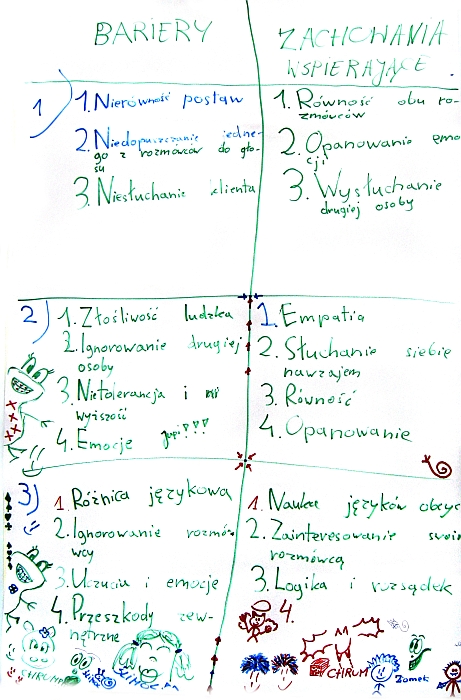 BARIERY
ZACHOWANIA
WSPIERAJĄCE.
1) 1. Nierówność postaw
2. Niedopuszczanie jedne-
go z rozmówców do gło-
su
3. Niesłuchanie klienta
1. Równość obu ro-
zmówców
2. Opanowanie emo
cji
3. Wysłuchanie
drugiej osoby
2) 1. Złośliwość ludzka
2. Ignorowanie drugiej
osoby
3. Nietolerancja i
wyższość
4. Emocje Jupi!!!
1. Empatia
2. Słuchanie siebie
nawzajem
3. Równość
4. Opanowanie
3) 1. Różnica językowa
2. Ignorowanie rozmów-
wcy
3. Uczucia i emocje
4. Przeszkody zew-
nętrzne
1. Nauka języków obcyc
2. Zainteresowanie swoim
rozmówcą
3. Logika i rozsądek
4.
CHRUM
Ziomek